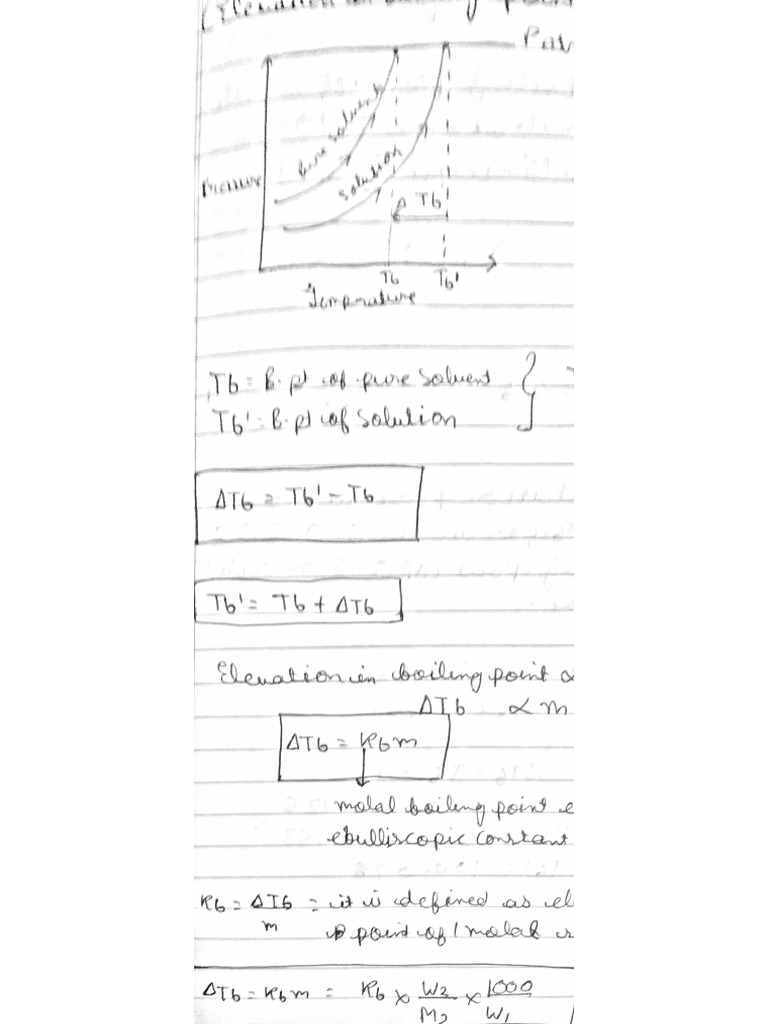 (Elevation in boiling point
Pat
Pure solvent
solution
Pressure
Δ Tb
Tb Tb'
Temprature
Tb = B. pt of pure solvent
Tb' = B. pt of solution
ΔTb = Tb' - Tb
Tb' = Tb + ΔTb
Elevation in boiling point α
ΔTb α m
ΔTb = Kb m
molal boiling point e
ebulliscopic constant
Kb = ΔTb = it is defined as el
m point of 1 molal
ΔTb = Kb m = Kb × W2 × 1000
M2 W1